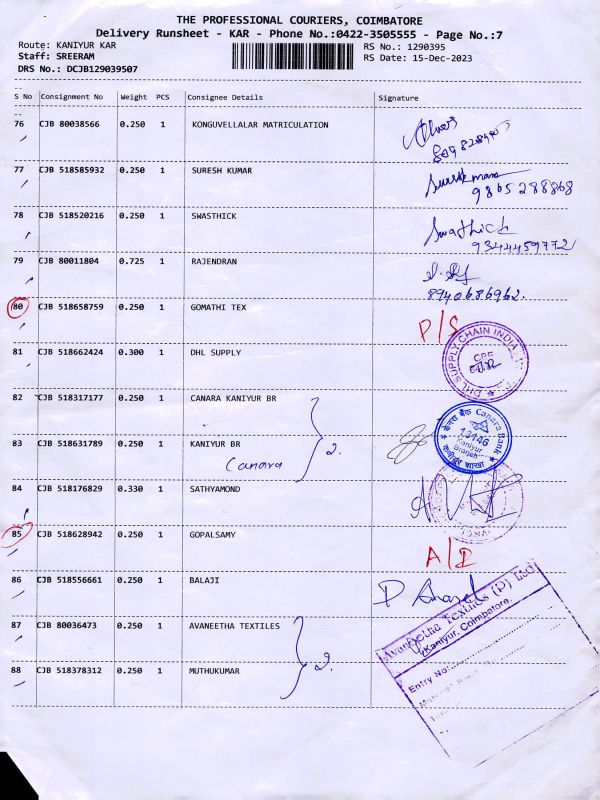 THE PROFESSIONAL COURIERS, COIMBATORE
Delivery Runsheet - KAR - Phone No.:0422-3505555 - Page No.:7
Route: KANIYUR KAR
RS No.: 1290395
Staff: SREERAM
RS Date: 15-Dec-2023
DRS No.: DCJB129039507
S No Consignment No Weight PCS Consignee Details Signature
76 CJB 80038566 0.250 1 KONGUVELLALAR MATRICULATION
77 CJB 518585932 0.250 1 SURESH KUMAR
9865288868
78 CJB 518520216 0.250 1 SWASTHICK Swathick
9344459772
79 CJB 80011804 0.725 1 RAJENDRAN
8940686962.
80 CJB 518658759 0.250 1 GOMATHI TEX P/S
81 CJB 518662424 0.300 1 DHL SUPPLY
DHL SUPPLY CHAIN INDIA
82 CJB 518317177 0.250 1 CANARA KANIYUR BR
83 CJB 518631789 0.250 1 KANIYUR BR 2.
(Canara
केनरा बैंक Canara Bank
Kaniyur
Branch
84 CJB 518176829 0.330 1 SATHYAMOND
85 CJB 518628942 0.250 1 GOPALSAMY A/I
86 CJB 518556661 0.250 1 BALAJI
87 CJB 80036473 0.250 1 AVANEETHA TEXTILES
88 CJB 518378312 0.250 1 MUTHUKUMAR 2.
Avaneetha Textiles (P) Ltd
Kaniyur, Coimbatore.
Entry No: